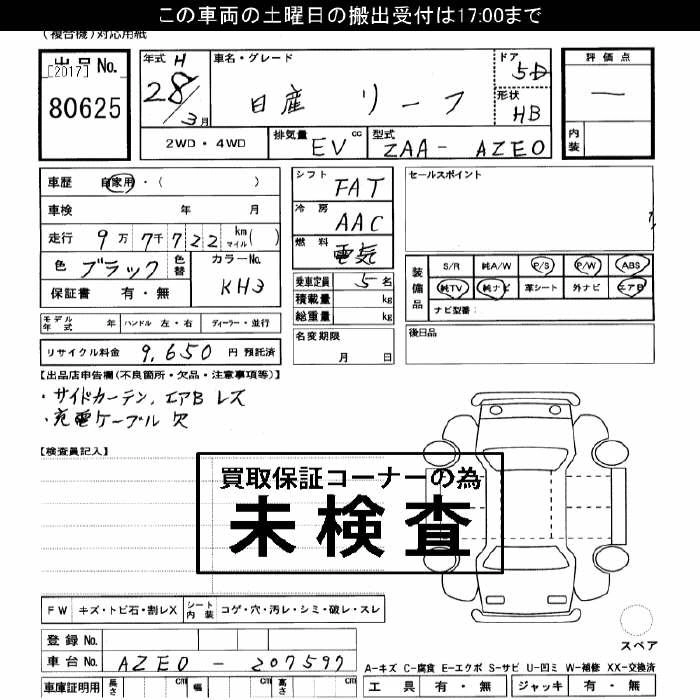 この車両の土曜日の搬出受付は17:00まで
(複合機)対応用紙
出品No.
[2017]
80625
年式 H
28/3月
車名・グレード
日産 リーフ
ドア
5D
形状
HB
評価点
—
内装
2WD・4WD
排気量 cc
EV
型式
ZAA- AZE0
車歴 自家用・( )
車検 年 月
走行 9万7千722 km マイル( )
色 ブラック 色替
カラーNo.
KH3
保証書 有・無
シフト
FAT
冷房
AAC
燃料
電気
乗車定員 5名
積載量 kg
総重量 kg
名変期限
月 日
セールスポイント
装備品
S/R 純A/W P/S P/W ABS
純TV 純ナビ 革シート 外ナビ エアB
ナビ型番:
後日品
モデル年式 年 ハンドル 左・右 ディーラー・並行
リサイクル料金 9,650 円 預託済
【出品店申告欄(不良箇所・欠品・注意事項等)】
・サイドカーテン,エアB レス
・充電ケーブル 欠
【検査員記入】
買取保証コーナーの為
未検査
FW キズ・トビ石・割レX シート内装 コゲ・穴・汚レ・シミ・破レ・スレ
登録No.
車台No. AZE0 - 207597
車庫証明用 長さ cm 幅 cm 高さ cm
スペア
A-キズ C-腐食 E-エクボ S-サビ U-凹ミ W-補修 XX-交換済
工具 有・無 ジャッキ 有・無